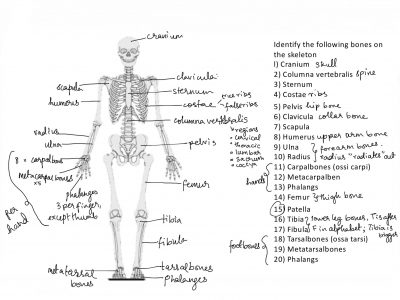 cranium
scapula
humerus
clavicula
sternum
costae
true ribs
false ribs
columna vertebralis
5 regions
cervical
thoracic
lumbar
sacrum
coccyx
radius
ulna
pelvis
8 x carpalbones
metacarpalbones
x5
phalanges
3 per finger
except thumb
per hand
femur
tibia
fibula
metatarsal
bones
tarsalbones
phalanges
Identify the following bones on
the skeleton
1) Cranium skull
2) Columna vertebralis spine
3) Sternum
4) Costae ribs
5) Pelvis hip bone
6) Clavicula collar bone
7) Scapula
8) Humerus upper arm bone
9) Ulna } forearm bones.
10) Radius radius "radiates" out
11) Carpalbones (ossi carpi)
12) Metacarpalben
13) Phalangs
hand
14) Femur thigh bone
15) Patella
16) Tibia } lower leg bones, T is after
17) Fibula F in alphabet; Tibia is
bigger
18) Tarsalbones (ossa tarsi)
19) Metatarsalbones
20) Phalangs
foot bones